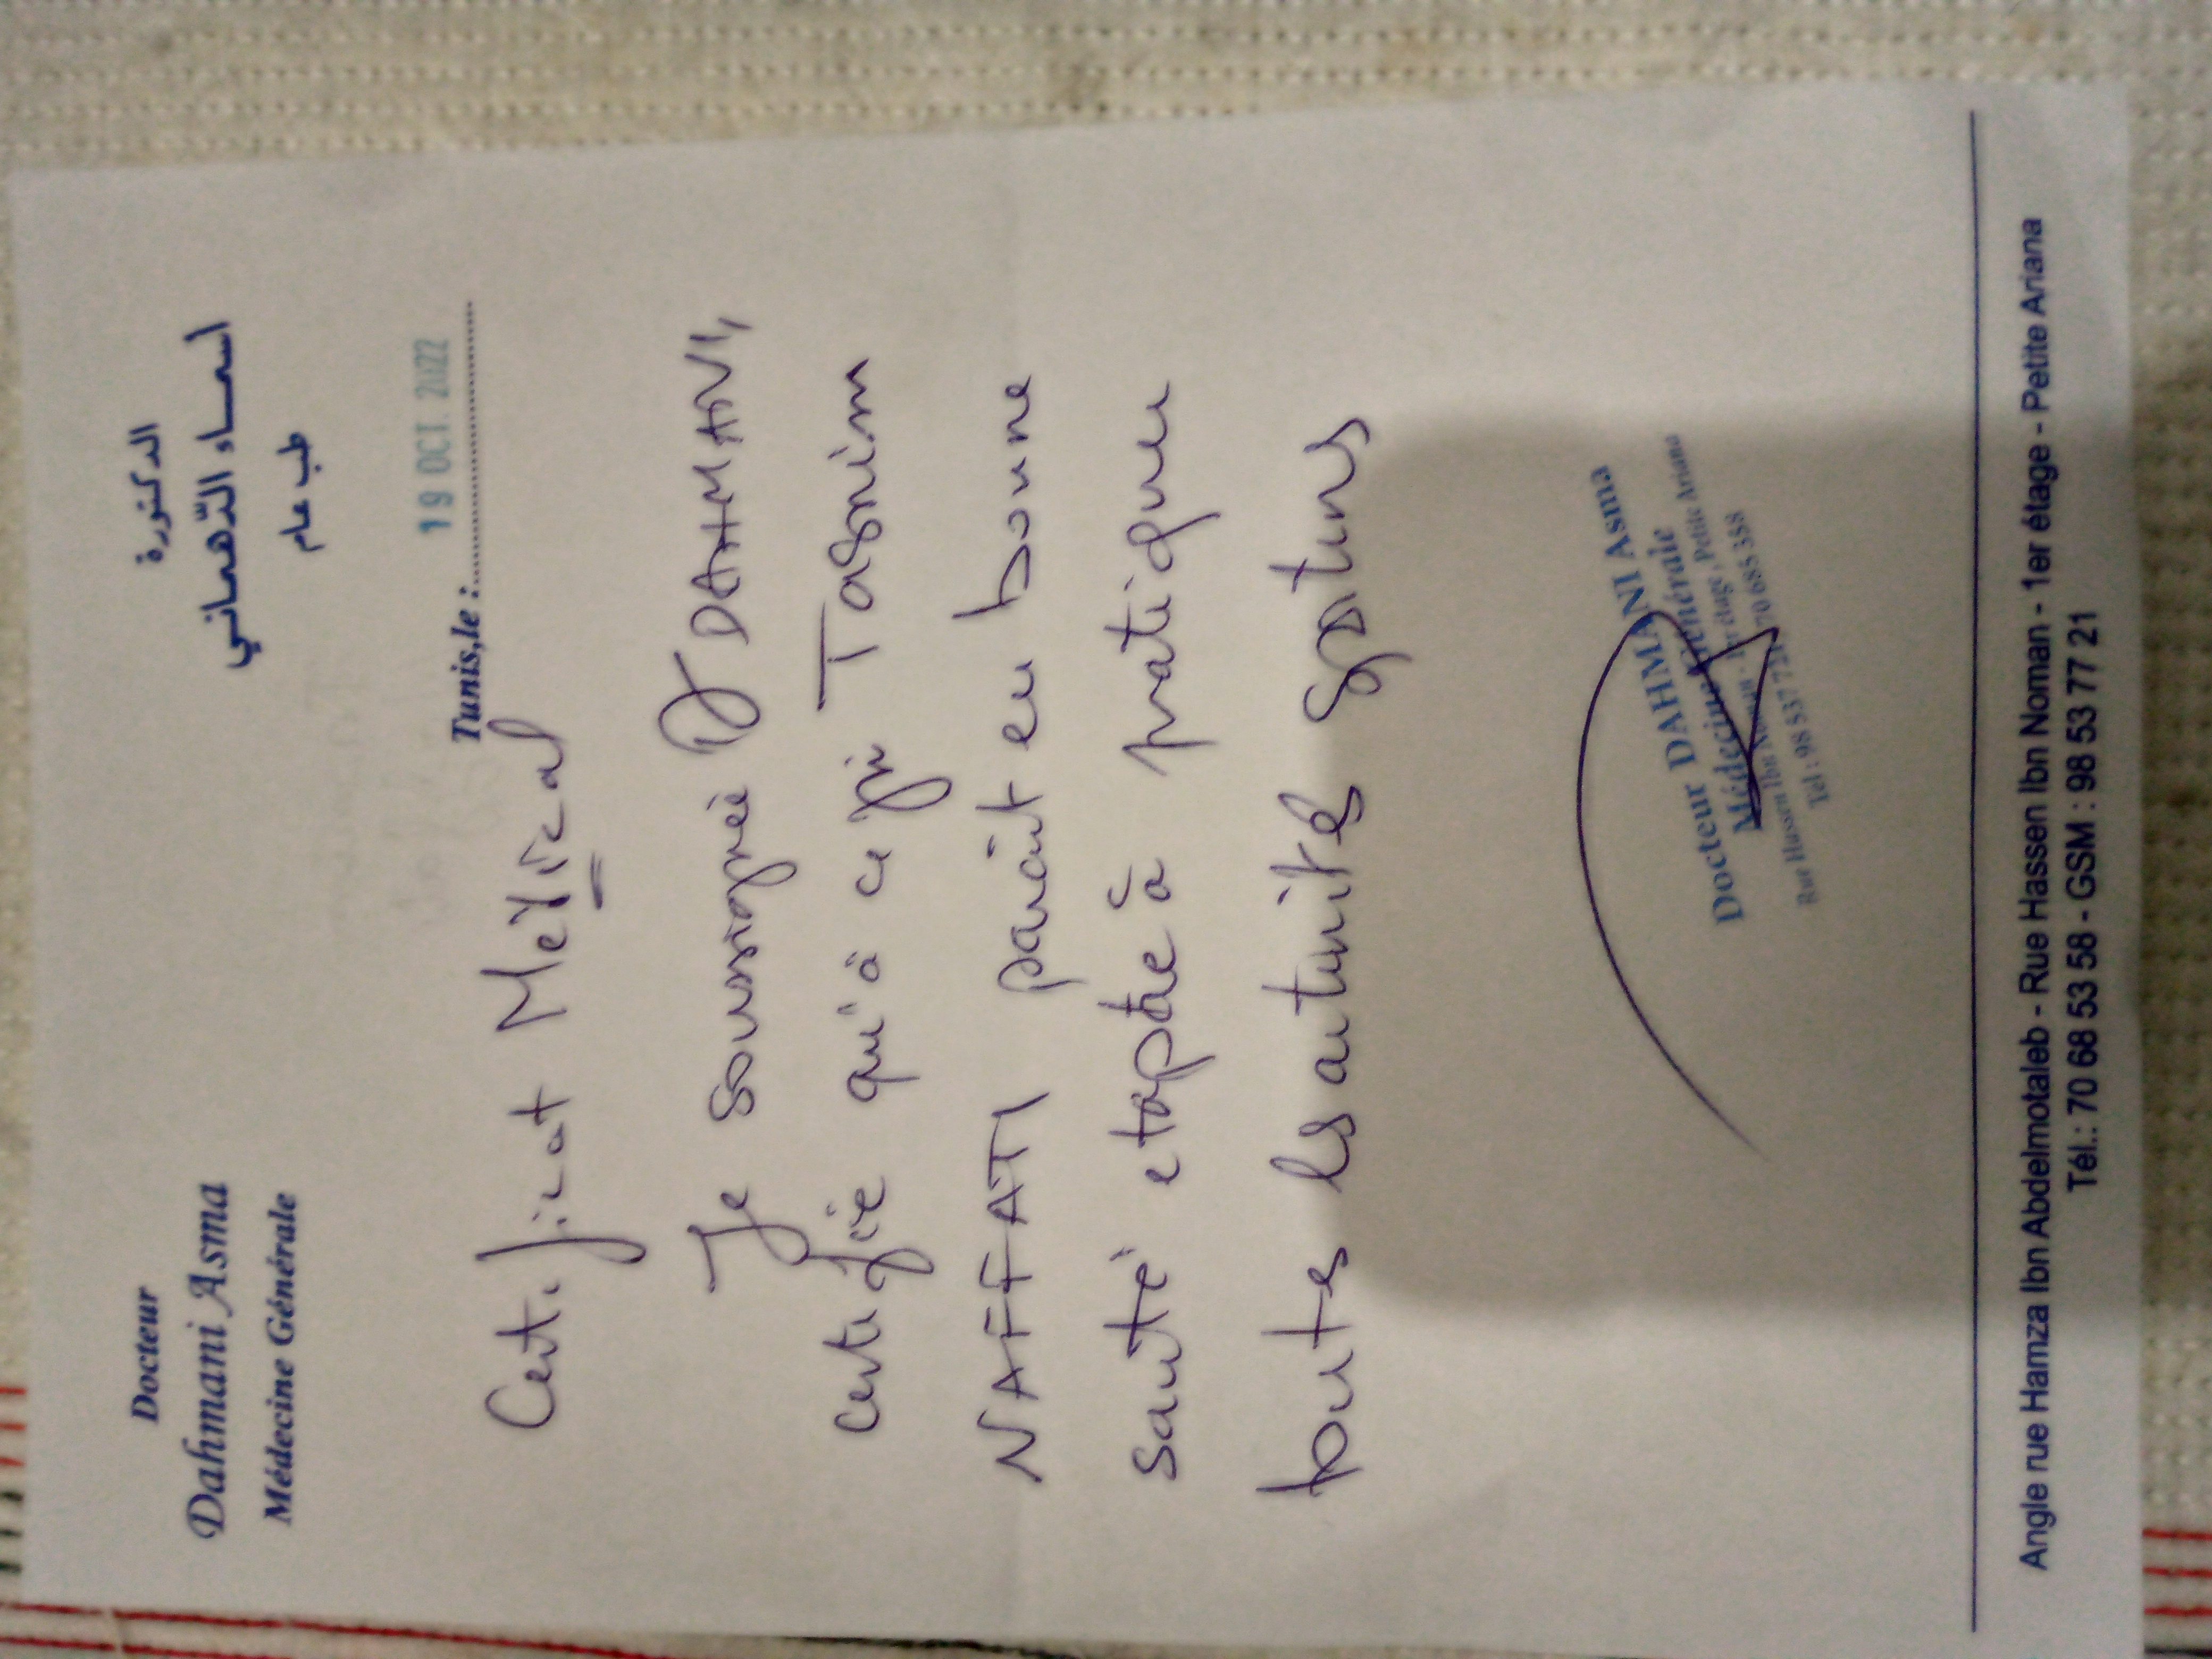 Docteur
Dahmani Asma
Médecine Générale
الدكتورة
اسماء الدّهماني
طب عام
Tunis,le :
19 OCT. 2022
Certificat Médical
Je soussignée Dr DAHMANI,
certifie qu'à ce jour Tasnim
NAFFATI parait en bonne
santé et apte à pratiquer
toutes les activités sportives
Docteur DAHMANI Asma
Médecine Générale
Rue Hassen Ibn Noman - 1er étage, Petite Ariana
Tél : 98 537 721 70 685 358
Angle rue Hamza Ibn Abdelmotaleb - Rue Hassen Ibn Noman - 1er étage - Petite Ariana
Tél.: 70 68 53 58 - GSM : 98 53 77 21